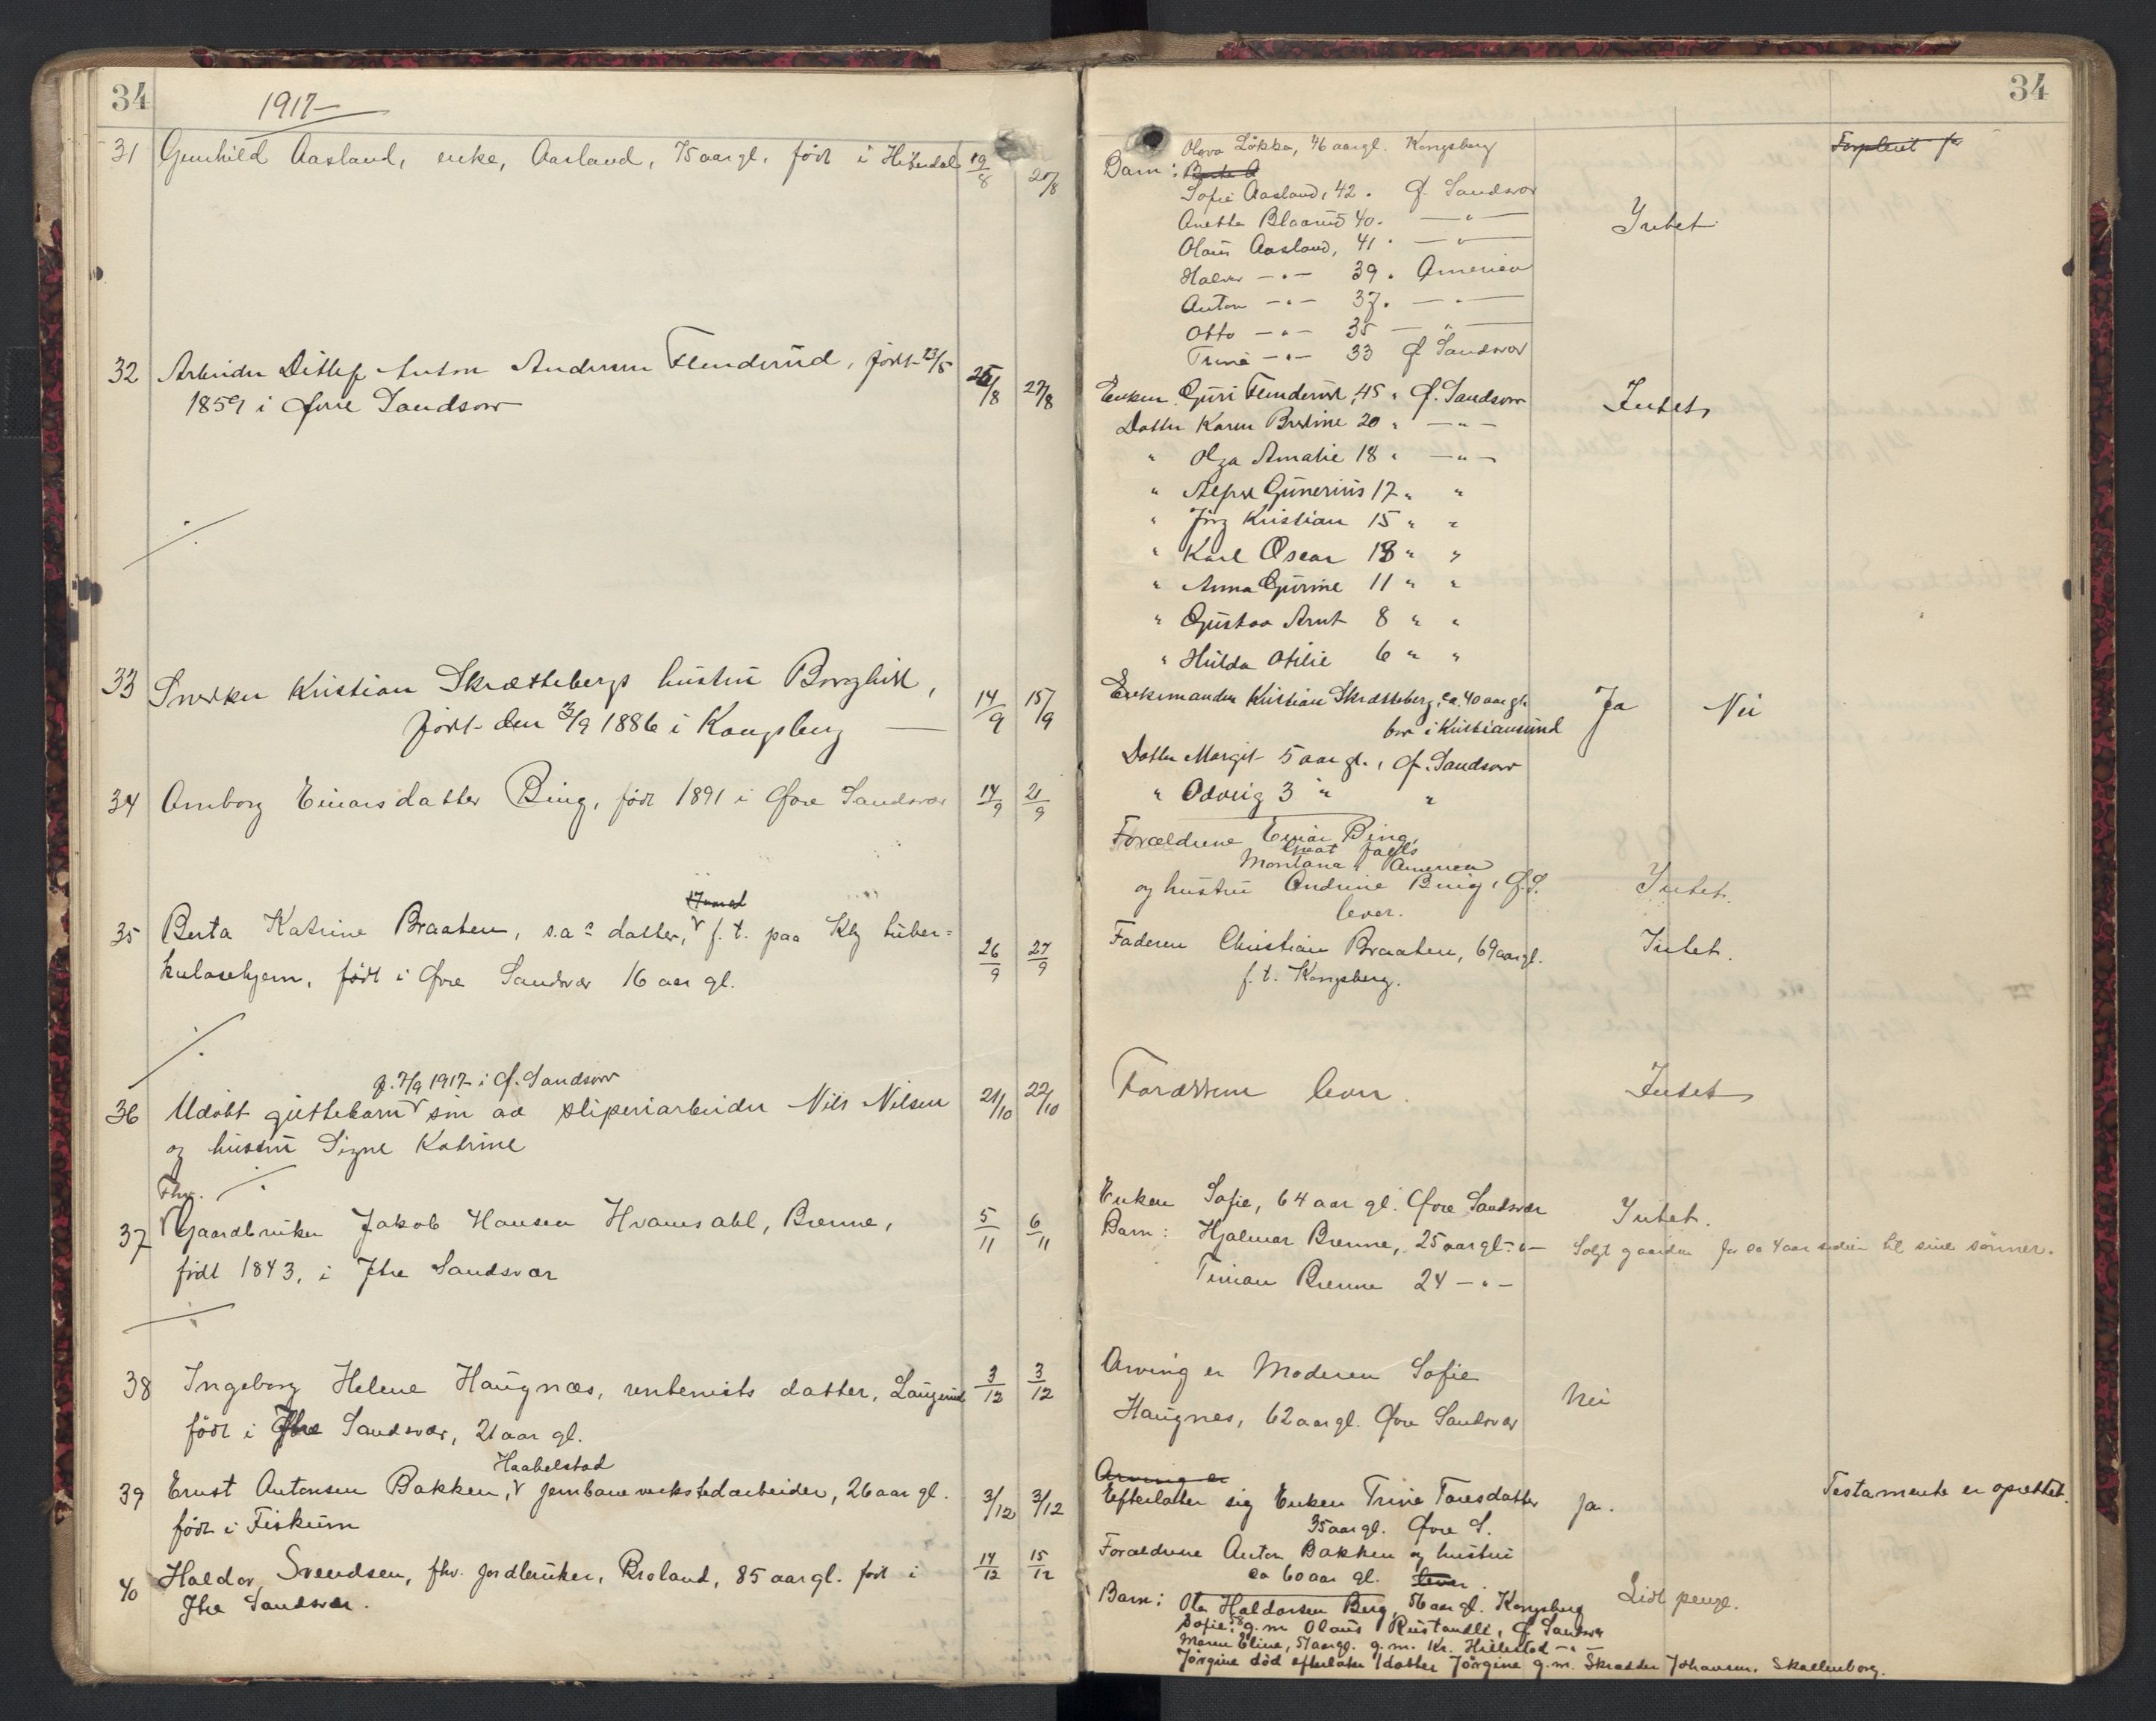 34
1917
31 Gunhild Aasland, enke, Aasland, 75 aar gl. född i Hitterdal 19/8 20/8
32 Arbeider Ditlef Anton Andersen Flenderud, født 23/5
1859 i Øvre Sandsvær 25/8 27/8
33 Snekker Kristian Skrættebergs hustru Borghild,
født den 3/9 1886 i Kongsberg 14/9 15/9
34 Amborg Einarsdatter Bing, född 1891 i Øvre Sandsvær 14/9 21/9
35 Berta Katrine Braaten, datter, f. t. paa Kbg tuber=
kulosehjem, född i Øvre Sandsvær 16 aar gl. 26/9 27/9
f. 7/9 1917 i Ø. Sandsvær
36 Udöbt guttebarn søn av sliperiarbeider Nils Nilsen 21/10 22/10
og hustru Signe Katrine
Fhv.
37 Gaardbruker Jakob Hansen Hvamsahl, Brenne, 5/11 6/11
född 1843, i Ytre Sandsvær
38 Ingeborg Helene Haugnæs, rentenists datter, Laugerud 3/12 3/12
född i Ytre Sandsvær, 21 aar gl.
Haabelstad
39 Ernst Antonsen Bakken, jernbaneverkstedarbeider, 26 aar gl. 3/12 3/12
född i Fiskum
40 Haldor Svendsen, fhv. jordbruker, Broland, 85 aar gl. född i 14/12 15/12
Ytre Sandsvær.
34
Olava Lökka, 46 aar gl. Kongsberg
Barn:
Sofie Aasland, 42 " Ø. Sandsvær
Anette Blaarud 40 " — " —
Olaus Aasland, 41 " — " —
Halvor — " — 39 " America
Anton — " — 37 " — " —
Otto — " — 35 — " —
Trine — " — 33 Ø Sandsvær
Intet
Enken Guri Flenderud, 45 " Ø. Sandsvær Intet
Datter Karen Bredine 20 " — " —
" Olga Amalie 18 " — " —
" Alfred Gunerius 17 " "
" Jörg Kristian 15 " "
" Karl Oscar 13 " "
" Anna Gurine 11 " "
" Gustav Arnt 8 " "
" Hulda Otilie 6 " "
Enkemanden Kristian Skrætteberg, ca. 40 aar gl. Ja Nei
bor i Kristiansund
Datter Margit 5 aar gl., Ø. Sandsvær
" Odveig 3 " "
Forældrene Einar Bing,
Great Falls
Montana i America
og hustru Andrine Bing, Ø. S. Intet.
lever.
Faderen Christian Braaten, 69 aar gl. Intet.
f. t. Kongsberg.
Forældrene lever. Intet
Enken Sofie, 64 aar gl. Øvre Sandsvær Intet.
Barn: Hjalmar Brenne, 25 aar gl. — " — Solgt gaarden for ca 4 aar siden til sine sönner.
Timian Brenne 24 — " —
Arving er Moderen Sofie
Haugnes, 62 aar gl. Øvre Sandsvær Nei
Arving er
Efterlater sig Enken Trine Taresdatter Ja. Testamente er oprettet.
35 aar gl. Øvre S.
Forældrene Anton Bakken og hustru
ca 60 aar gl. lever.
Barn: Ole Haldorsen Berg, 56 aar gl. Kongsberg Lidt penge.
Sofie, 58 g. m. Olaus Rustandli, Ø Sandsvær
Maren Eline, 51 aar gl. g. m. Kr. Hillestad — " —
Jörgine död efterlater 1 datter Jörgine g. m. Skrædder Johansen, Skollenborg.